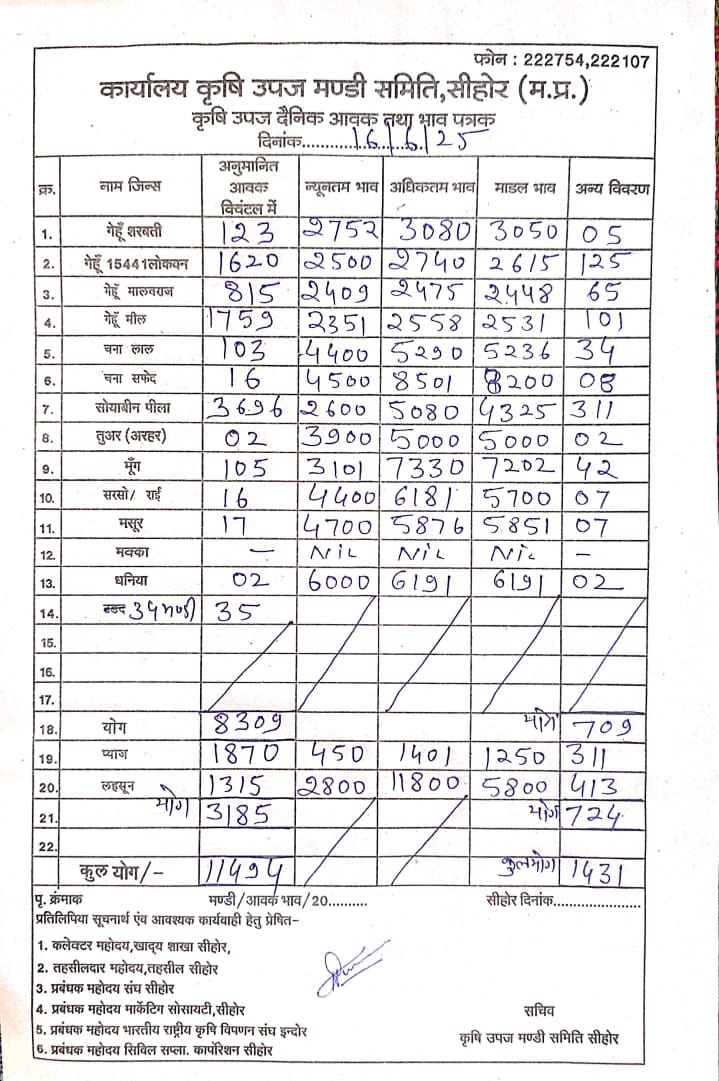 फोन : 222754,222107
कार्यालय कृषि उपज मण्डी समिति,सीहोर (म.प्र.)
कृषि उपज दैनिक आवक तथा भाव पत्रक
दिनांक............16/6/25
क्र. नाम जिन्स अनुमानित आवक विवंटल में न्यूनतम भाव अधिकतम भाव माडल भाव अन्य विवरण
1. गेहूँ शरबती 123 2752 3080 3050 05
2. गेहूँ 15441लोकवन 1620 2500 2740 2615 125
3. गेहूँ मालवराज 815 2409 2475 2448 65
4. गेहूँ मील 1759 2351 2558 2531 101
5. चना लाल 103 4400 5290 5236 34
6. चना सफेद 16 4500 8501 8200 08
7. सोयाबीन पीला 3696 2600 5080 4325 311
8. तुअर (अरहर) 02 3900 5000 5000 02
9. मूँग 105 3101 7330 7202 42
10. सरसो/ राई 16 4400 6181 5700 07
11. मसूर 17 4700 5876 5851 07
12. मक्का – Nil Nil Nil –
13. धनिया 02 6000 6191 6191 02
14. उपमण्डी 35
15.
16.
17.
18. योग 8309 योग 709
19. प्याज 1870 450 1401 1250 311
20. लहसून 1315 2800 11800 5800 413
21. योग 3185 योग 724
22.
कुल योग/- 11494 कुलयोग 1431
पृ. क्रंमाक मण्डी/आवक भाव/20.......... सीहोर दिनांक......................
प्रतिलिपिया सूचनार्थ एंव आवश्यक कार्यवाही हेतु प्रेषित-
1. कलेक्टर महोदय,खाद्य शाखा सीहोर,
2. तहसीलदार महोदय,तहसील सीहोर
3. प्रबंधक महोदय संघ सीहोर
4. प्रबंधक महोदय मार्केटिग सोसायटी,सीहोर
5. प्रबंधक महोदय भारतीय राष्ट्रीय कृषि विपणन संघ इन्दोर
6. प्रबंधक महोदय सिविल सप्ला. कार्पोरेशन सीहोर
सचिव
कृषि उपज मण्डी समिति सीहोर